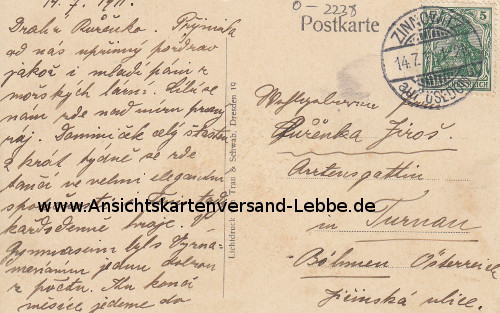 14.7.1911.
Drahá Růženko. Přijměte
od nás upřímný pozdrav
jakož i mladý pán z
mořských lázní. Líbí se
nám zde nad míru pravý
ráj. Domniček celý šťastný
2 krát týdně se zde
tančí ve velmi elegantní
každodenně hraje.
Gymnasium byl s vyzna-
menáním jednu dobrou
z počtů. Ku konci
měsíce jedeme do
Lichtdruck Trau & Schwab, Dresden 19
0-2238
Postkarte
ZINNOWITZ
14.7.
auf USEDOM
5
Wohlgeborene
Růženka Jiroš
Arztensgattin
in Turnau
Böhmen Österreich
Jičínská ulice.
www.Ansichtskartenversand-Lebbe.de